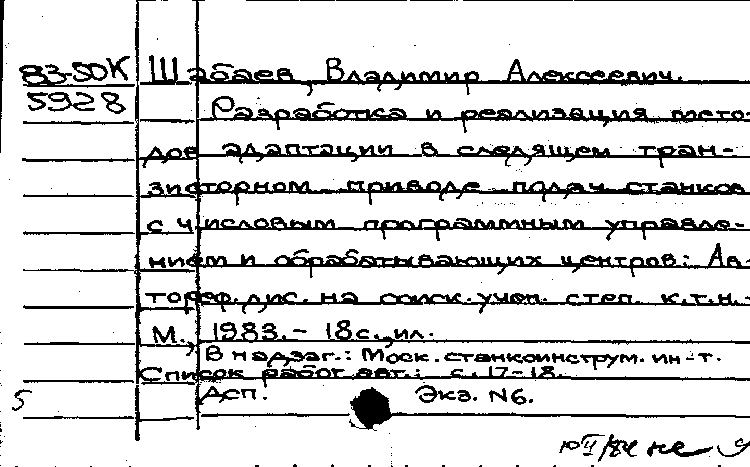 83-50К Шабаев, Владимир Алексеевич.
5928 Разработка и реализация мето-
дов адаптации в следящем тран-
зисторном приводе подач станков
с числовым программным управле-
нием и обрабатывающих центров: Ав-
тореф. дис. на соиск. учен. степ. к.т.н.
М., 1983. - 18 с., ил.
В надзаг.: Моск. станкоинструм. ин-т.
Список работ авт.: с. 17-18.
5 Экз. N6.